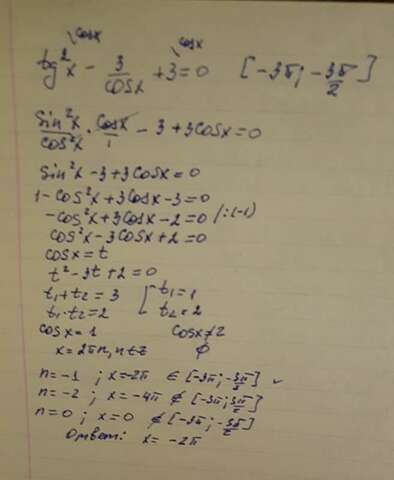 cosx cosx
tg²x - 3/cosx + 3 = 0 [-3π; -3π/2]
sin²x/cos²x · cosx/1 - 3 + 3cosx = 0
sin²x - 3 + 3cosx = 0
1 - cos²x + 3cosx - 3 = 0
-cos²x + 3cosx - 2 = 0 /:(-1)
cos²x - 3cosx + 2 = 0
cosx = t
t² - 3t + 2 = 0
t₁ + t₂ = 3 [ t₁ = 1
t₁ · t₂ = 2 t₂ = 2
cosx = 1 cosx ≠ 2
x = 2πn, n∈z ∅
n = -1 ; x = -2π ∈ [-3π; -3π/2] ✓
n = -2 ; x = -4π ∉ [-3π; -3π/2]
n = 0 ; x = 0 ∉ [-3π; -3π/2]
Ответ: x = -2π